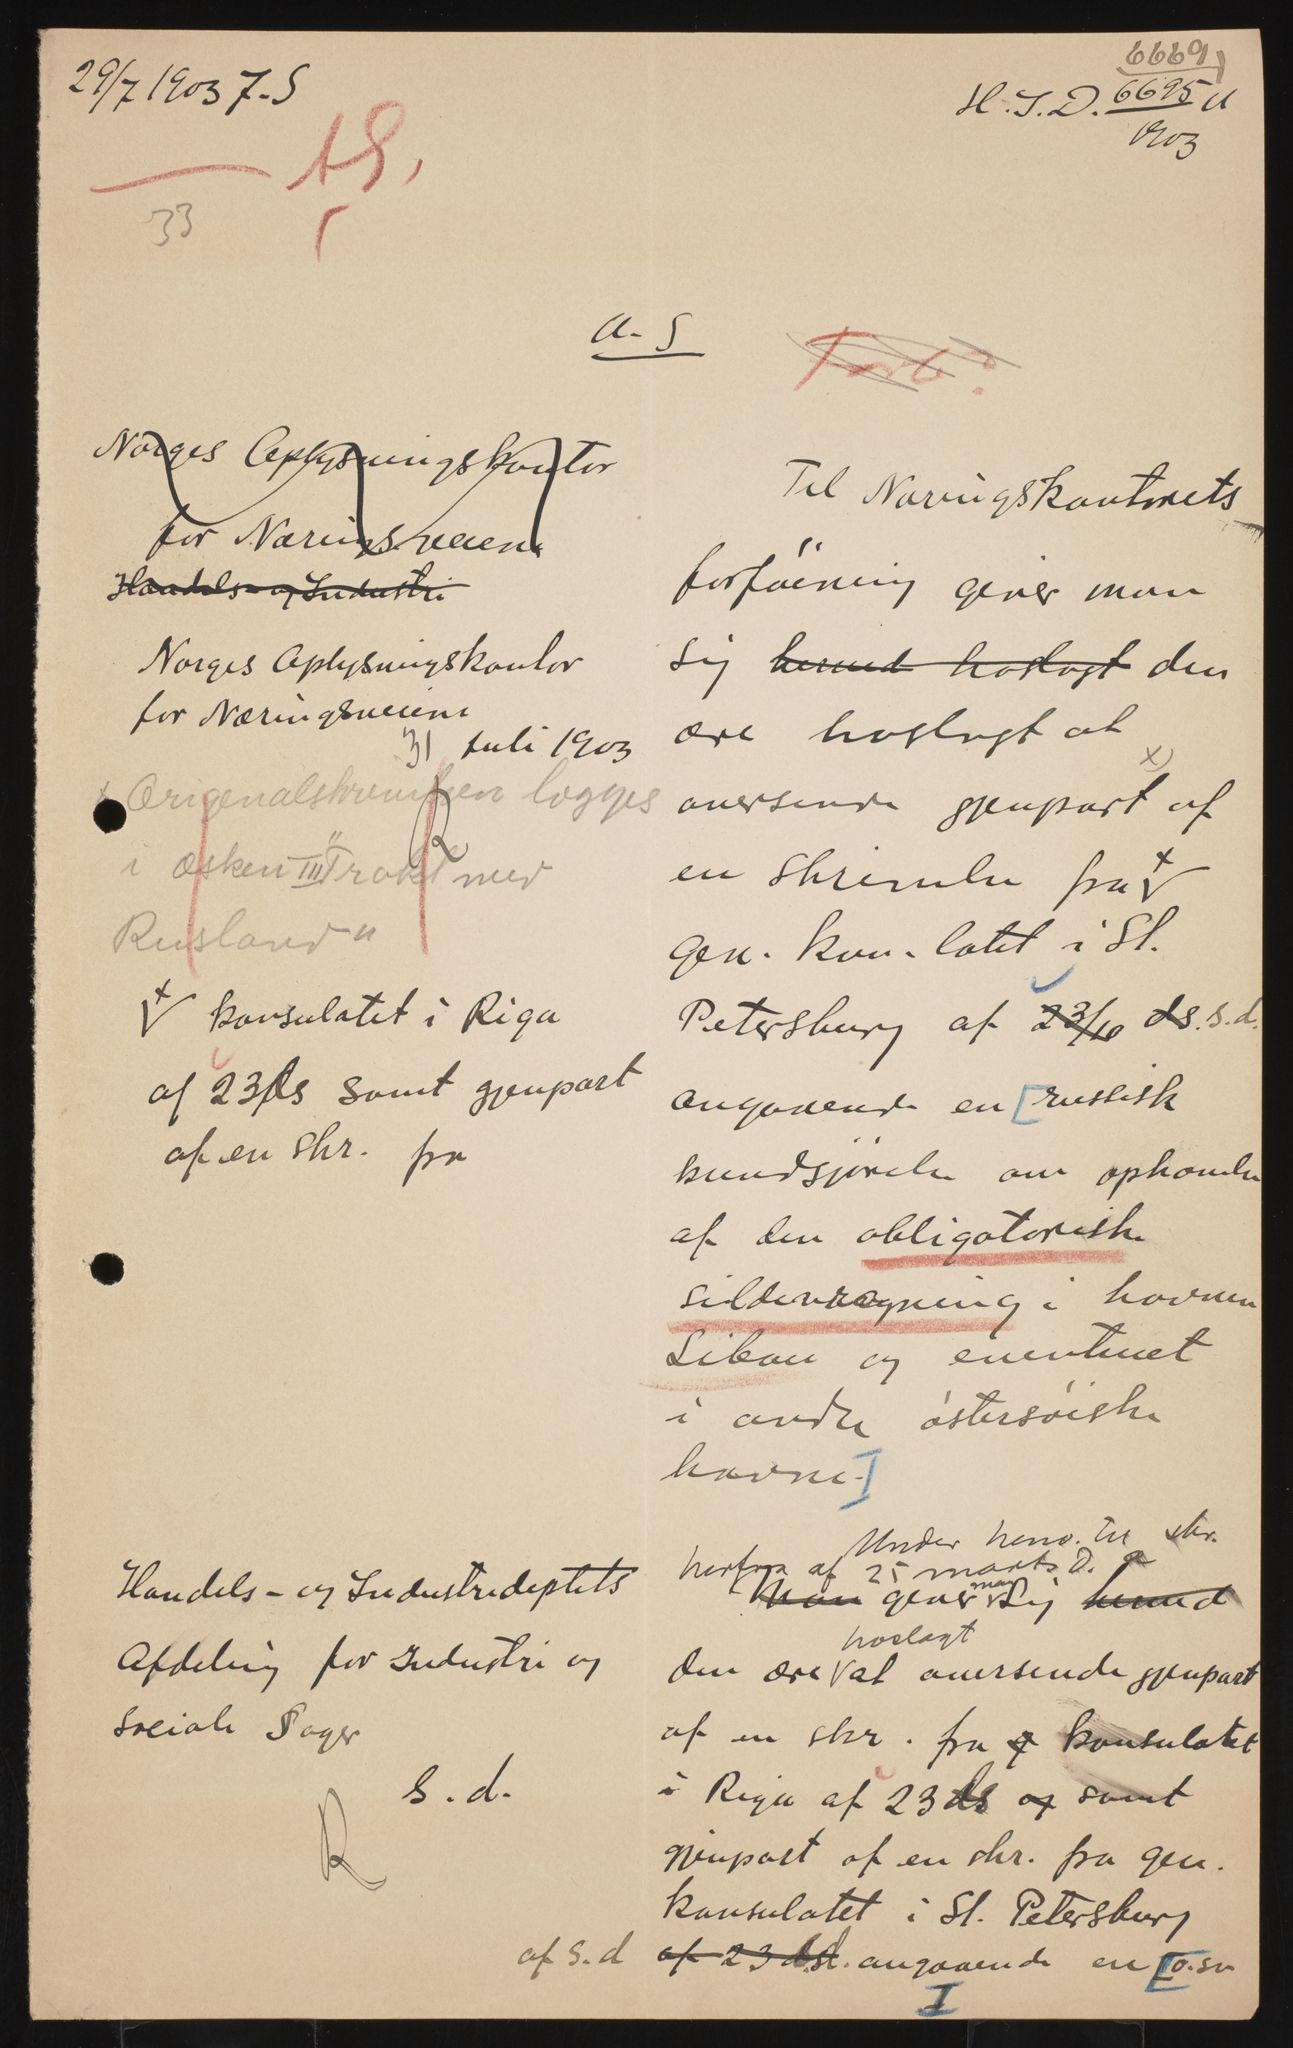 29/7 1903 F-S
6669
H.I.D. 6695 A
1903
33
A-S
Norges Oplysningskontor
for Næringsveiene
Handels- og Industri
Norges Oplysningskontor
for Næringsveiene
31 Juli 1903
x Originalskrivelsen lægges
i æsken III "Trakt med
Rusland"
R
V konsulatet i Riga
af 23/ds samt gjenpart
af en skr. fra
Handels- og Industrideptets
Afdeling for Industri og
sociale Sager
S.d.
R
Til Næringskontorets
forføining giver man
sig herved hoslagt den
ære hoslagt at
oversende gjenpart x) af
en skrivelse fra V
gen. kon-latet i St.
Petersburg af 23/ ds. s.d.
angaaende en [russisk
kundgjørelse om ophævelse
af den obligatoriske
sildevragning i havnen
Libau og eventuelt
i andre østersøiske
havne.]
Under henv. til skr.
herfra af 25 marts d.
Man giver man sig herved
hoslagt
den ære V at oversende gjenpart
af en skr. fra g konsulatet
i Riga af 23 ds og samt
gjenpart af en skr. fra gen.
konsulatet i St. Petersburg
af s.d af 23 ds. angaaende en [o.sv
I